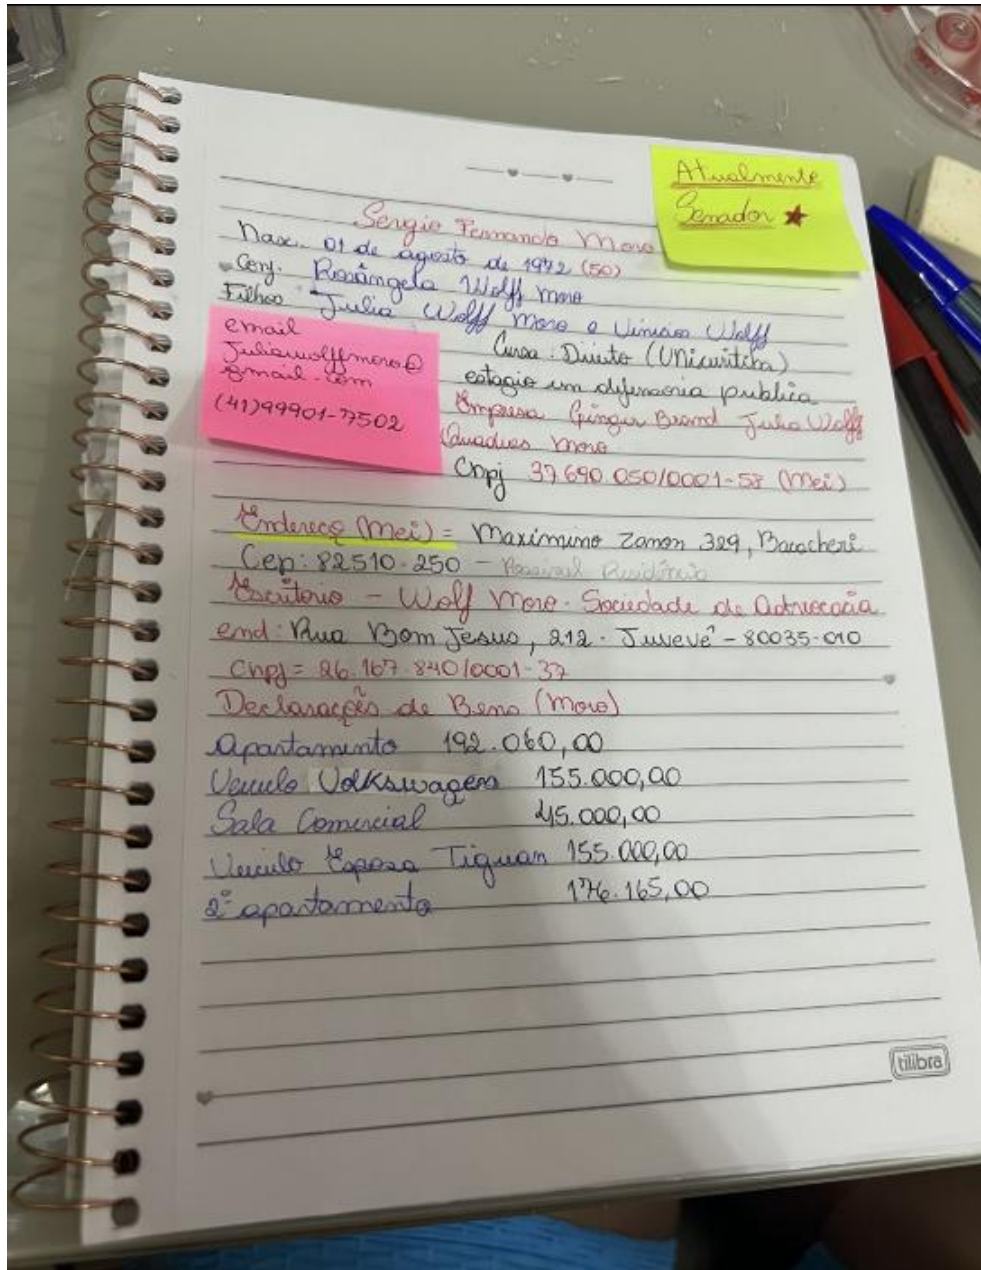 Atualmente
Senador
Sergio Fernando Moro
Nasc. 01 de agosto de 1972 (50)
Conj. Rosângela Wolff Moro
Filhos Julia Wolff Moro e Vinicius Wolff
email
[omitted]
[omitted]
[omitted]
Curso: Direito (Unicuritiba)
estagio em defensoria publica
Empresa Ginger Brand Julia Wolff
Quadros Moro
Cnpj [omitted] (Mei)
Endereço (Mei) = [omitted]
Cep: [omitted] - Possivel Residência
Escritorio - Wolf Moro. Sociedade de Advocacia
end: [omitted]
Cnpj = 26.167.840/0001-37
Declarações de Bens (Moro)
Apartamento 192.060,00
Veiculo Volkswagem 155.000,00
Sala Comercial 45.000,00
Veiculo Esposa Tiguan 155.000,00
2º apartamento 176.165,00
tilibra